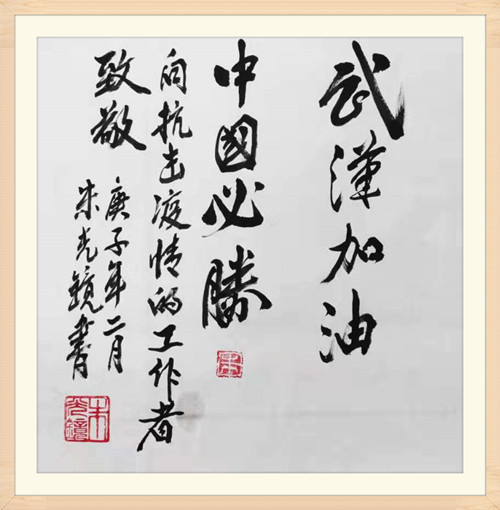 武漢加油
中國必勝
向抗击疫情的工作者
致敬
庚子年二月
朱光鏡書
朱光鏡